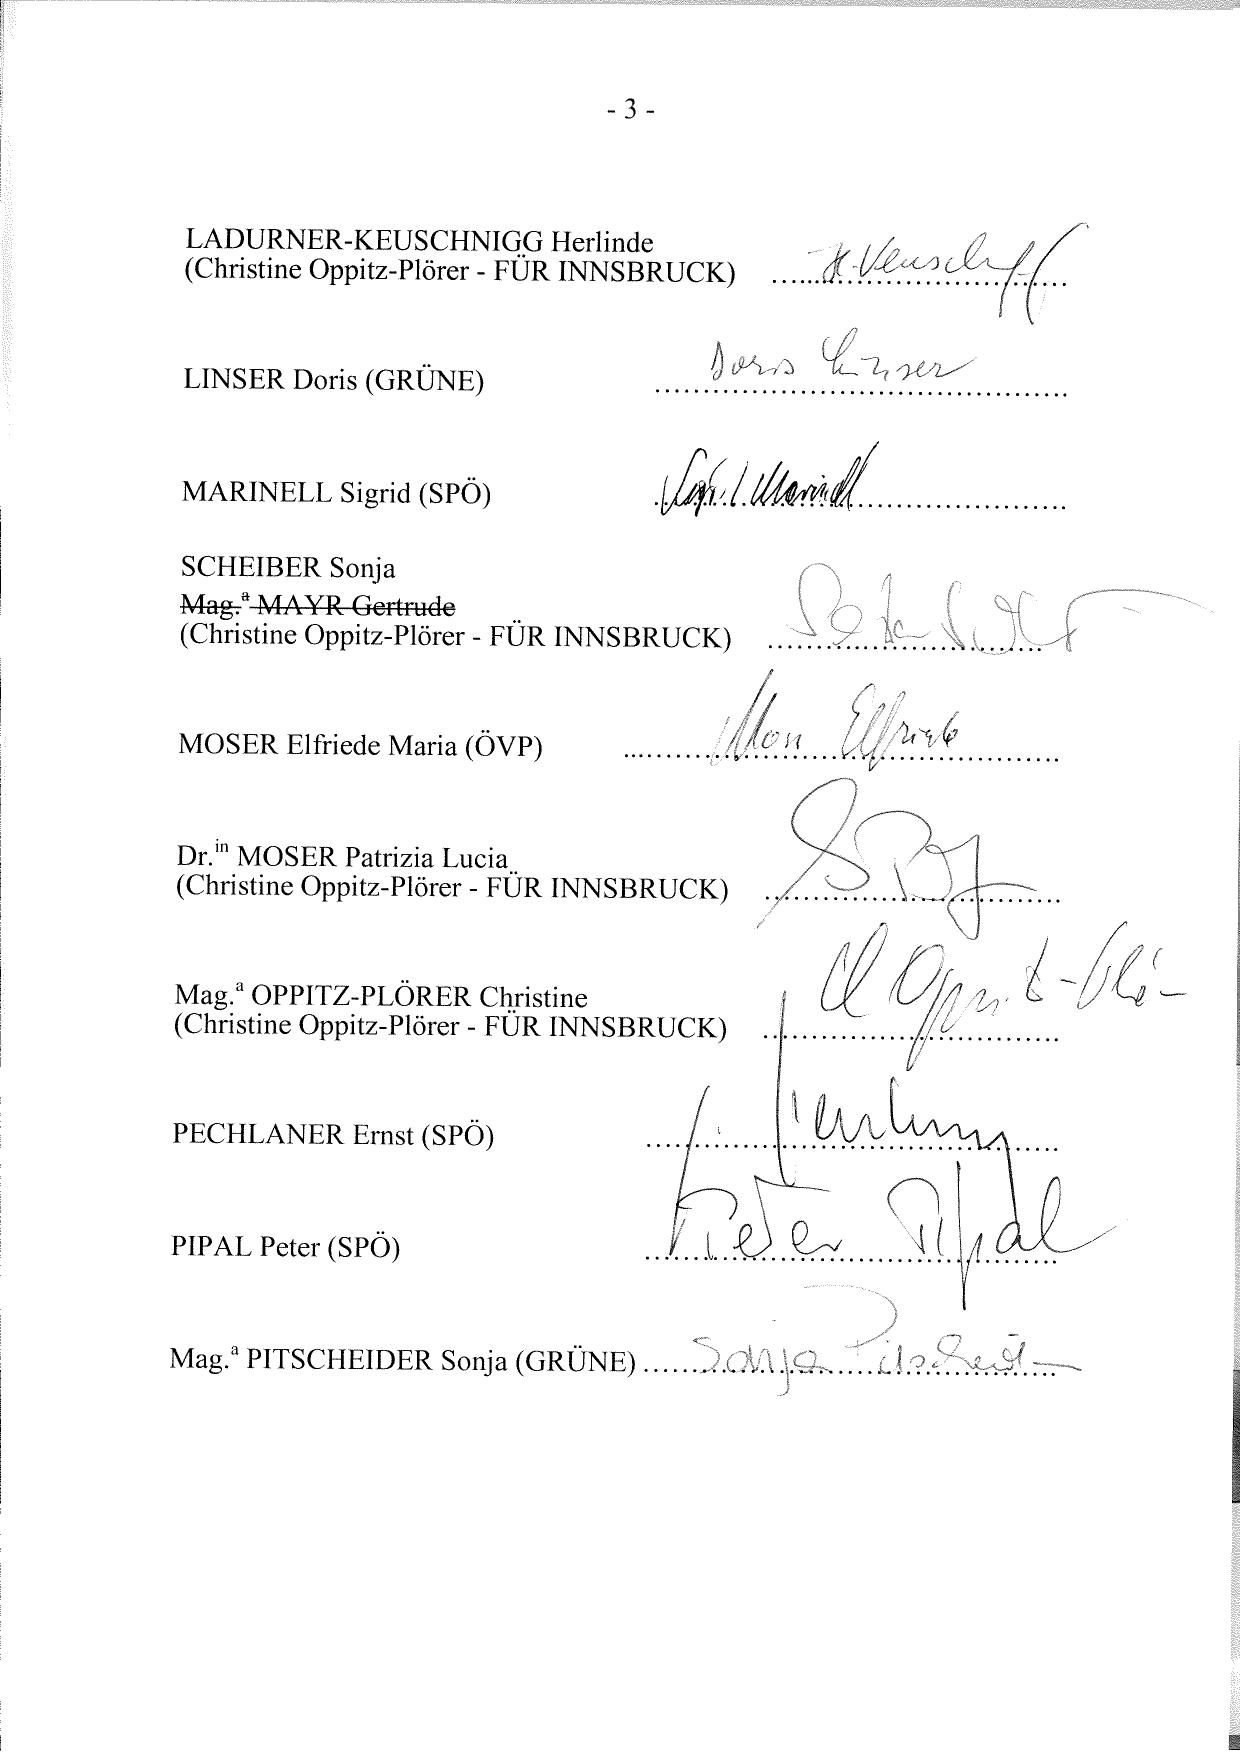 - 3 -
LADURNER-KEUSCHNIGG Herlinde
(Christine Oppitz-Plörer - FÜR INNSBRUCK)
LINSER Doris (GRÜNE)
Doris Linser
MARINELL Sigrid (SPÖ)
Marinell
SCHEIBER Sonja
Mag.ª MAYR Gertrude
(Christine Oppitz-Plörer - FÜR INNSBRUCK)
MOSER Elfriede Maria (ÖVP)
Elfriede
Dr.in MOSER Patrizia Lucia
(Christine Oppitz-Plörer - FÜR INNSBRUCK)
Mag.ª OPPITZ-PLÖRER Christine
(Christine Oppitz-Plörer - FÜR INNSBRUCK)
PECHLANER Ernst (SPÖ)
PIPAL Peter (SPÖ)
Peter Pipal
Mag.ª PITSCHEIDER Sonja (GRÜNE) Sonja Pitscheider